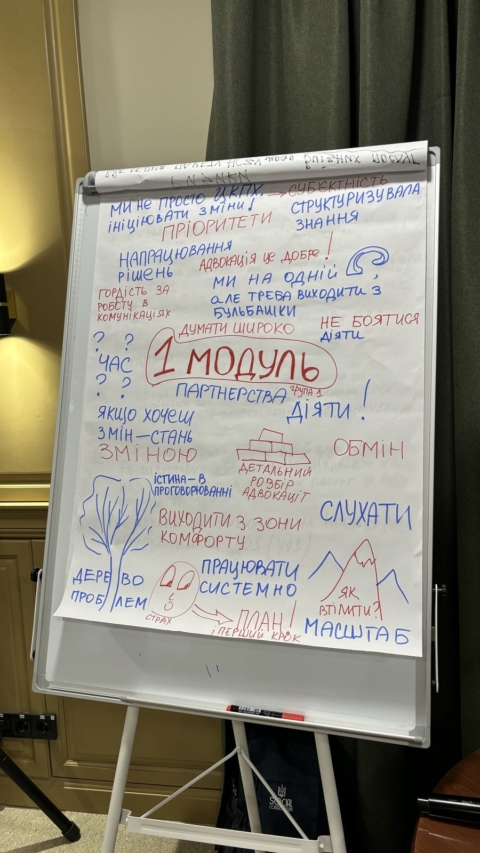 МИ НЕ ПРОСТО ЦКПХ,
ІНІЦІЮВАТИ ЗМІНИ!
СУБ'ЄКТНІСТЬ
СТРУКТУРИЗУВАЛА
ЗНАННЯ
ПРІОРИТЕТИ
НАПРАЦЮВАННЯ
РІШЕНЬ
АДВОКАЦІЯ ЦЕ ДОБРЕ!
ГОРДІСТЬ ЗА
РОБОТУ В
КОМУНІКАЦІЯХ
МИ НА ОДНІЙ
АЛЕ ТРЕБА ВИХОДИТИ З
БУЛЬБАШКИ
ДУМАТИ ШИРОКО
НЕ БОЯТИСЯ
ДІЯТИ
? ?
ЧАС
? ?
1 МОДУЛЬ
ГРУПА 1
ПАРТНЕРСТВА
ДІЯТИ!
ЯКЩО ХОЧЕШ
ЗМІН – СТАНЬ
ЗМІНОЮ
ДЕТАЛЬНИЙ
РОЗБІР
АДВОКАЦІЇ
ОБМІН
ІСТИНА – В
ПРОГОВОРЮВАННІ
ВИХОДИТИ З ЗОНИ
КОМФОРТУ
СЛУХАТИ
ДЕРЕВО
ПРОБЛЕМ
ПРАЦЮВАТИ
СИСТЕМНО
СТРАХ
ПЛАН!
І ПЕРШИЙ КРОК
ЯК
ВТІЛИТИ?
МАСШТАБ